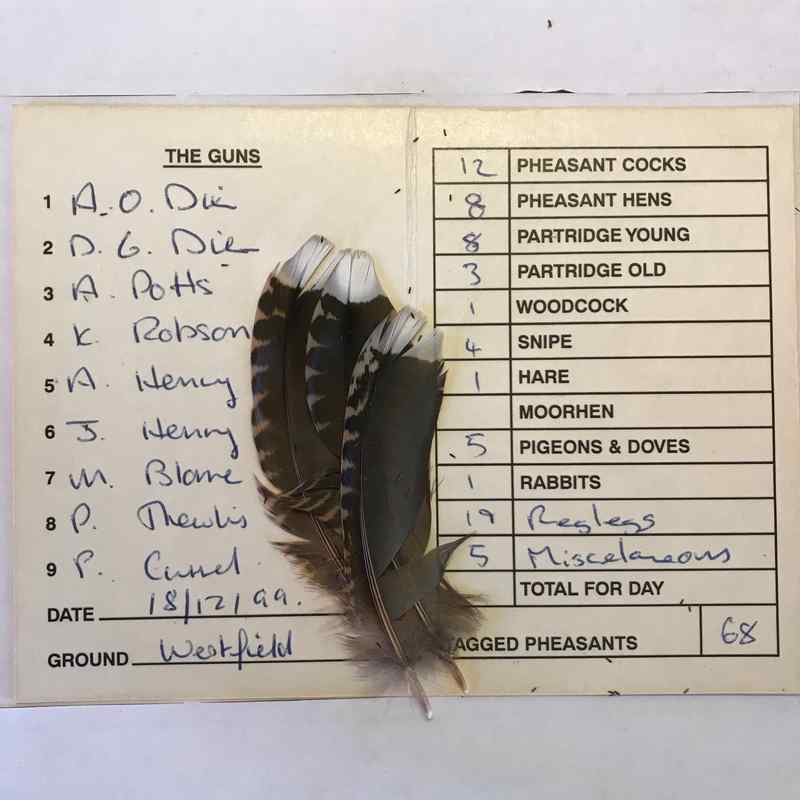 THE GUNS
1 A. O. Die
2 D. G. Die
3 A. Potts
4 K. Robson
5 A. Henry
6 J. Henry
7 M. Blame
8 P. Thewlis
9 P.
DATE 18/12/99.
GROUND Westfield
12 PHEASANT COCKS
8 PHEASANT HENS
8 PARTRIDGE YOUNG
3 PARTRIDGE OLD
1 WOODCOCK
4 SNIPE
1 HARE
MOORHEN
5 PIGEONS & DOVES
1 RABBITS
19 Reglegs
5 Miscelaneous
TOTAL FOR DAY
AGGED PHEASANTS 68